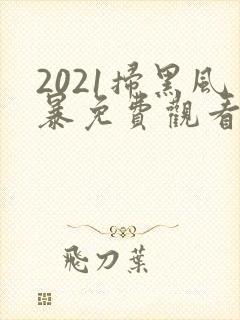 2021掃黑风
暴免費觀看
飛刀葉